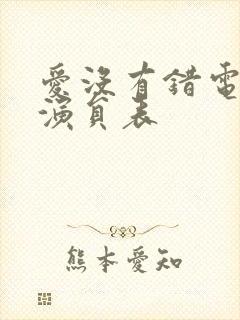 愛沒有錯電
演員表
熊本愛知